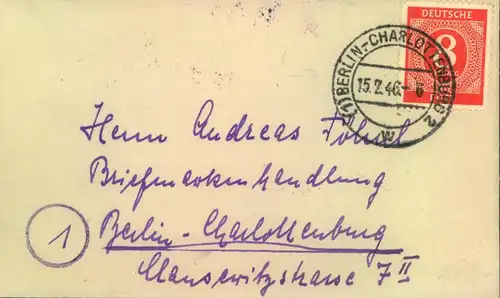 DEUTSCHE
8
(1) BERLIN-CHARLOTTENBURG 2
15.2.46.
w
Herrn Andreas
Briefmarkenhandlung
1
Berlin-Charlottenburg
7 II